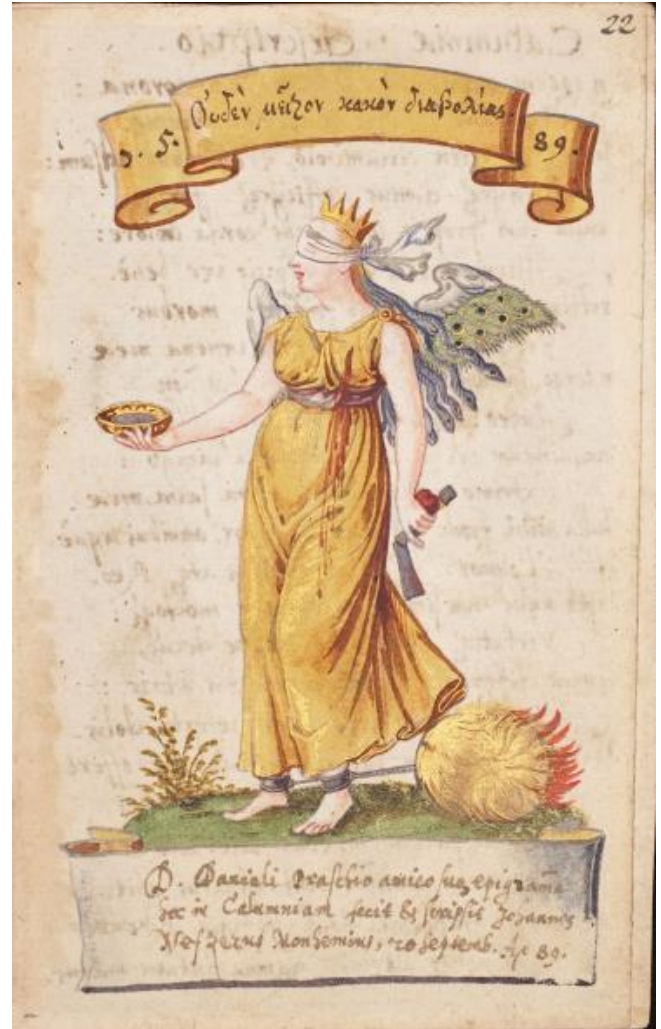 22
Οὐδὲν μεῖζον κακὸν διαβολίας.
5.
89.
D. Danieli Praschio amico suo epigrama
hoc in Calumniam fecit & scripsit Johannes
Monhemius, 20 Septemb. Aº 89.